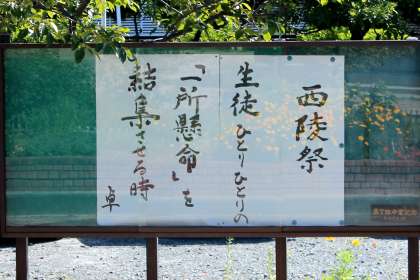 西陵祭
生徒ひとりひとりの
「一所懸命」を
結集させる時
卓